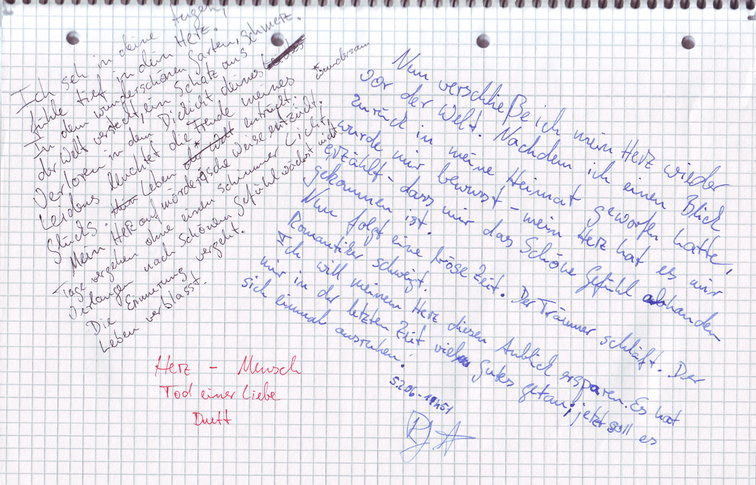 Ich seh in deine Augen,
fühle tief in dein Herz.
In dem wunderschönen Garten, Schmerz.
der Welt versteckt, ein Schatz aus
Verloren in dem Dickicht deines
Leidens leuchtet die Freude meines
Glücks. Leben entrückt. wundersam
Mein Herz auf mörderische Weise entzückt.
Tage vergehen ohne einen schimmer Licht,
Verlangen nach schönem Gefühl wächst nicht
Die Erinnerung vergeht.
Leben verblasst.
Nun verschließe ich mein Herz wieder
vor der Welt. Nachdem ich einen Blick
zurück in meine Heimat geworfen hatte,
wurde mir bewusst - mein Herz hat es mir
erzählt - dass mir das Schöne Gefühl abhanden
gekommen ist.
Nun folgt eine tröse Zeit. Der Träumer schläft. Der
Romantiker schweigt.
Ich will meinem Herz diesen Anblick ersparen. Es hat
mir in der letzten Zeit viel gutes getan; jetzt soll es
sich einmal ausruhen!
5.2.06 - 19h51
Herz - Mensch
Tod einer Liebe
Duett